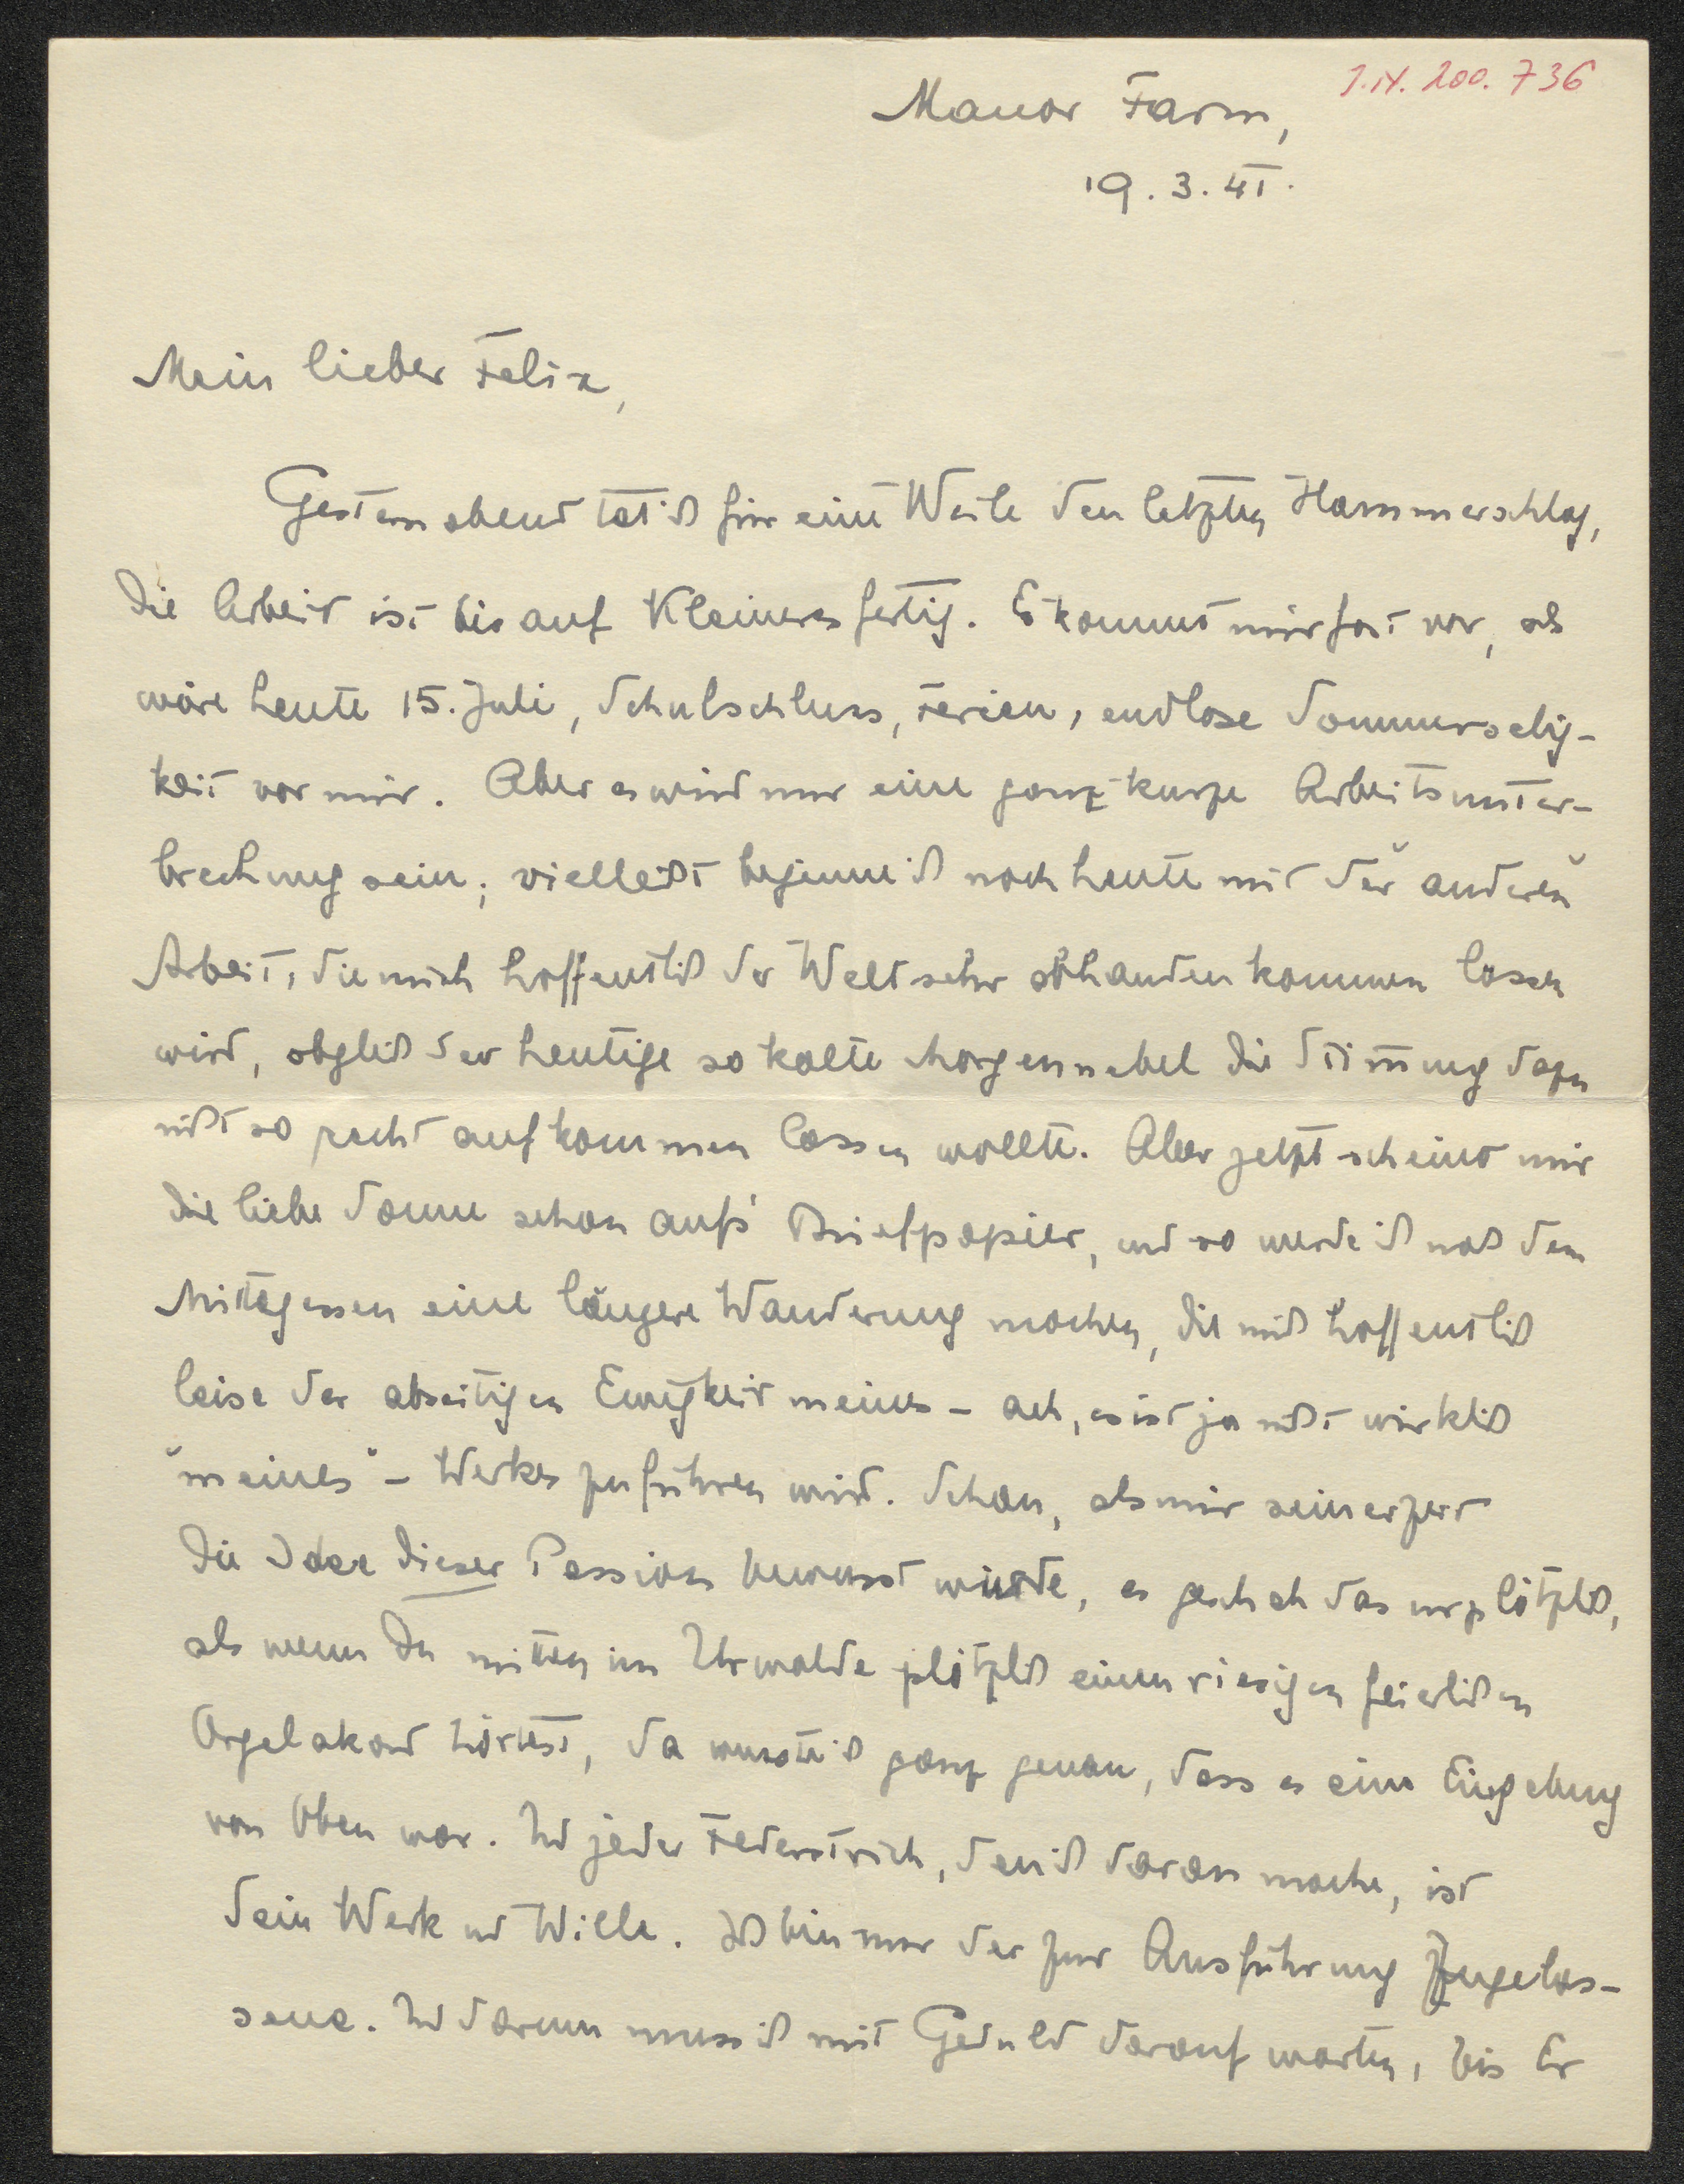 J.N. 200.736
Manor Farm,
19.3.41.
Mein lieber Felix,
Gestern abend tat ich für eine Weile den letzten Hammerschlag,
die Arbeit ist bis auf Kleineres fertig. Es kommt mir fast vor, als
wäre heute 15. Juli, Schulschluss, Ferien, endlose Sommerselig-
keit vor mir. Aber es wird nur eine ganz kurze Arbeitsunter-
brechung sein; vielleicht beginne ich noch heute mit der "anderen"
Arbeit, die mich hoffentlich der Welt sehr abhanden kommen lassen
wird, obgleich der heutige so kalte Morgennebel die Stimmung dazu
nicht so recht aufkommen lassen wollte. Aber jetzt scheint mir
die liebe Sonne schon auf's Briefpapier, und so werde ich nach dem
Mittagessen eine längere Wanderung machen, die mich hoffentlich
leise der abseitigen Ewigkeit meines – ach, es ist ja nicht wirklich
"meines" – Werkes zuführen wird. Schon, als mir seinerzeit
die Idee dieser Passion bewusst wurde, es geschah das urplötzlich,
als wenn Du mitten im Urwalde plötzlich einen riesigen feierlichen
Orgelakord hörtest, da wusste ich ganz genau, dass es eine Eingebung
von Oben war. Und jeder Federstrich, den ich daran mache, ist
Sein Werk und Wille. Ich bin nur der zur Ausführung Zugelas-
sene. Und darum muss ich mit Geduld darauf warten, bis Er